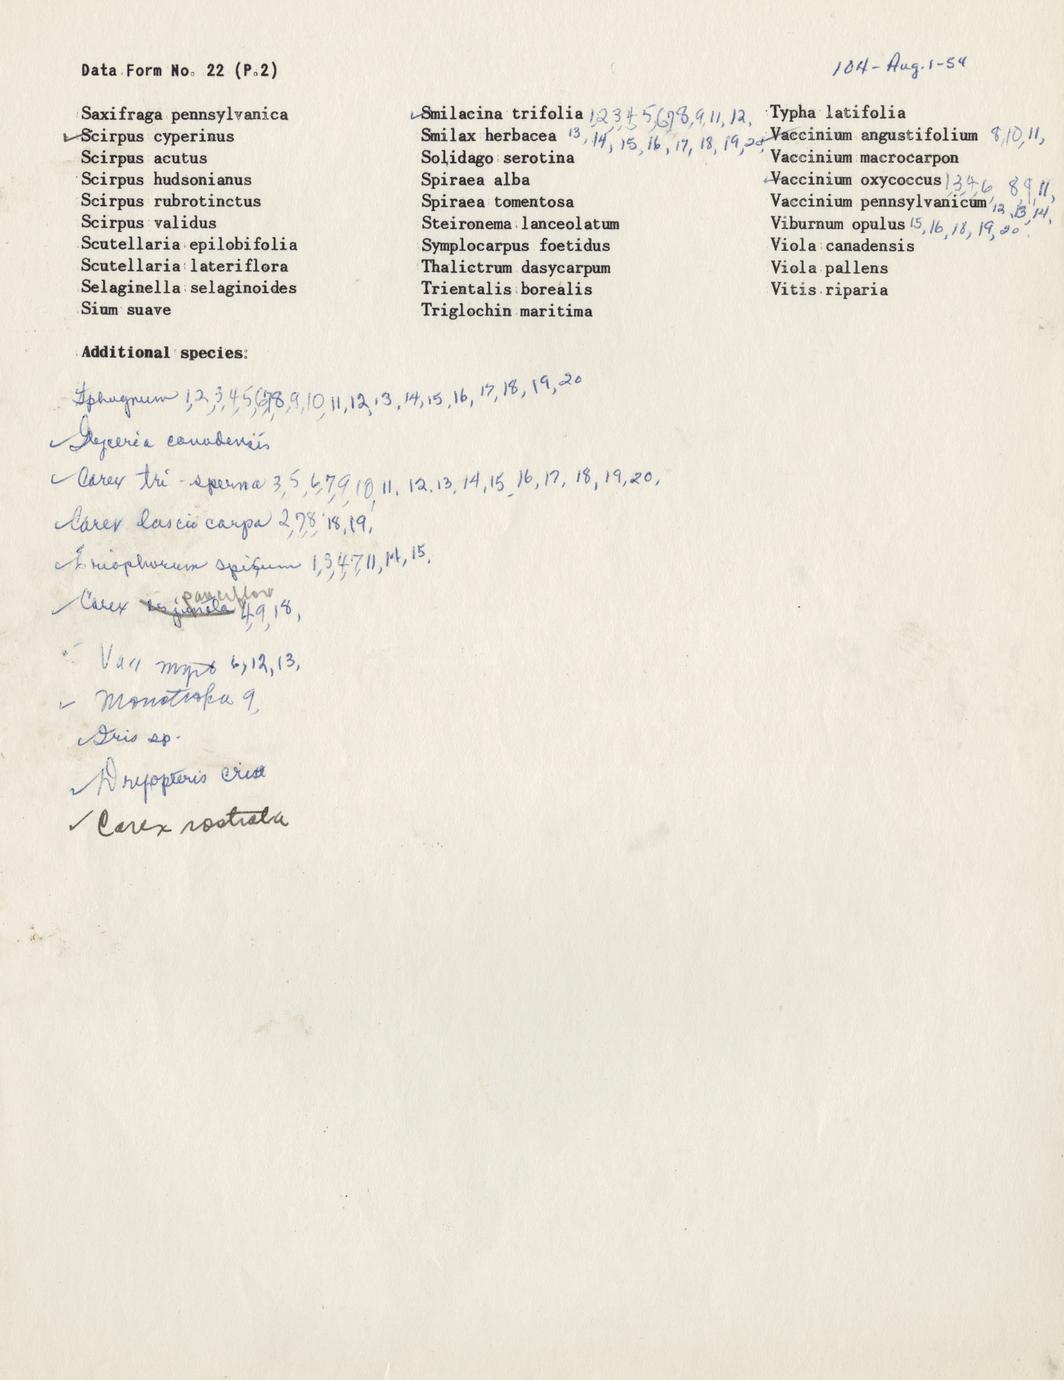 Data Form No. 22 (P.2)
104-Aug.1-59
Saxifraga pennsylvanica
Scirpus cyperinus
Scirpus acutus
Scirpus hudsonianus
Scirpus rubrotinctus
Scirpus validus
Scutellaria epilobifolia
Scutellaria lateriflora
Selaginella selaginoides
Sium suave
Smilacina trifolia 1,2,3,4,5,6,7,8,9,11,12,
Smilax herbacea 13,14,15,16,17,18,19,20
Solidago serotina
Spiraea alba
Spiraea tomentosa
Steironema lanceolatum
Symplocarpus foetidus
Thalictrum dasycarpum
Trientalis borealis
Triglochin maritima
Typha latifolia
Vaccinium angustifolium 8,10,11,
Vaccinium macrocarpon
Vaccinium oxycoccus 1,3,4,6 8,9,11,
Vaccinium pennsylvanicum 12,13,14,
Viburnum opulus 15,16,18,19,20
Viola canadensis
Viola pallens
Vitis riparia
Additional species:
Sphagnum 1,2,3,4,5,6,7,8,9,10,11,12,13,14,15,16,17,18,19,20
✓ Glyceria canadensis
✓ Carex tri-sperma 3,5,6,7,9,10,11,12,13,14,15,16,17,18,19,20,
✓ Carex lascio carpa 2,7,8,18,19,
✓ Eriophorum spissum 1,3,4,7,11,14,15,
pauciflor
✓ Carex 4,9,18,
Vacc myrt 6,12,13,
✓ Monotropa 9,
✓ Iris sp.
✓ Dryopteris crist
✓ Carex rostrata